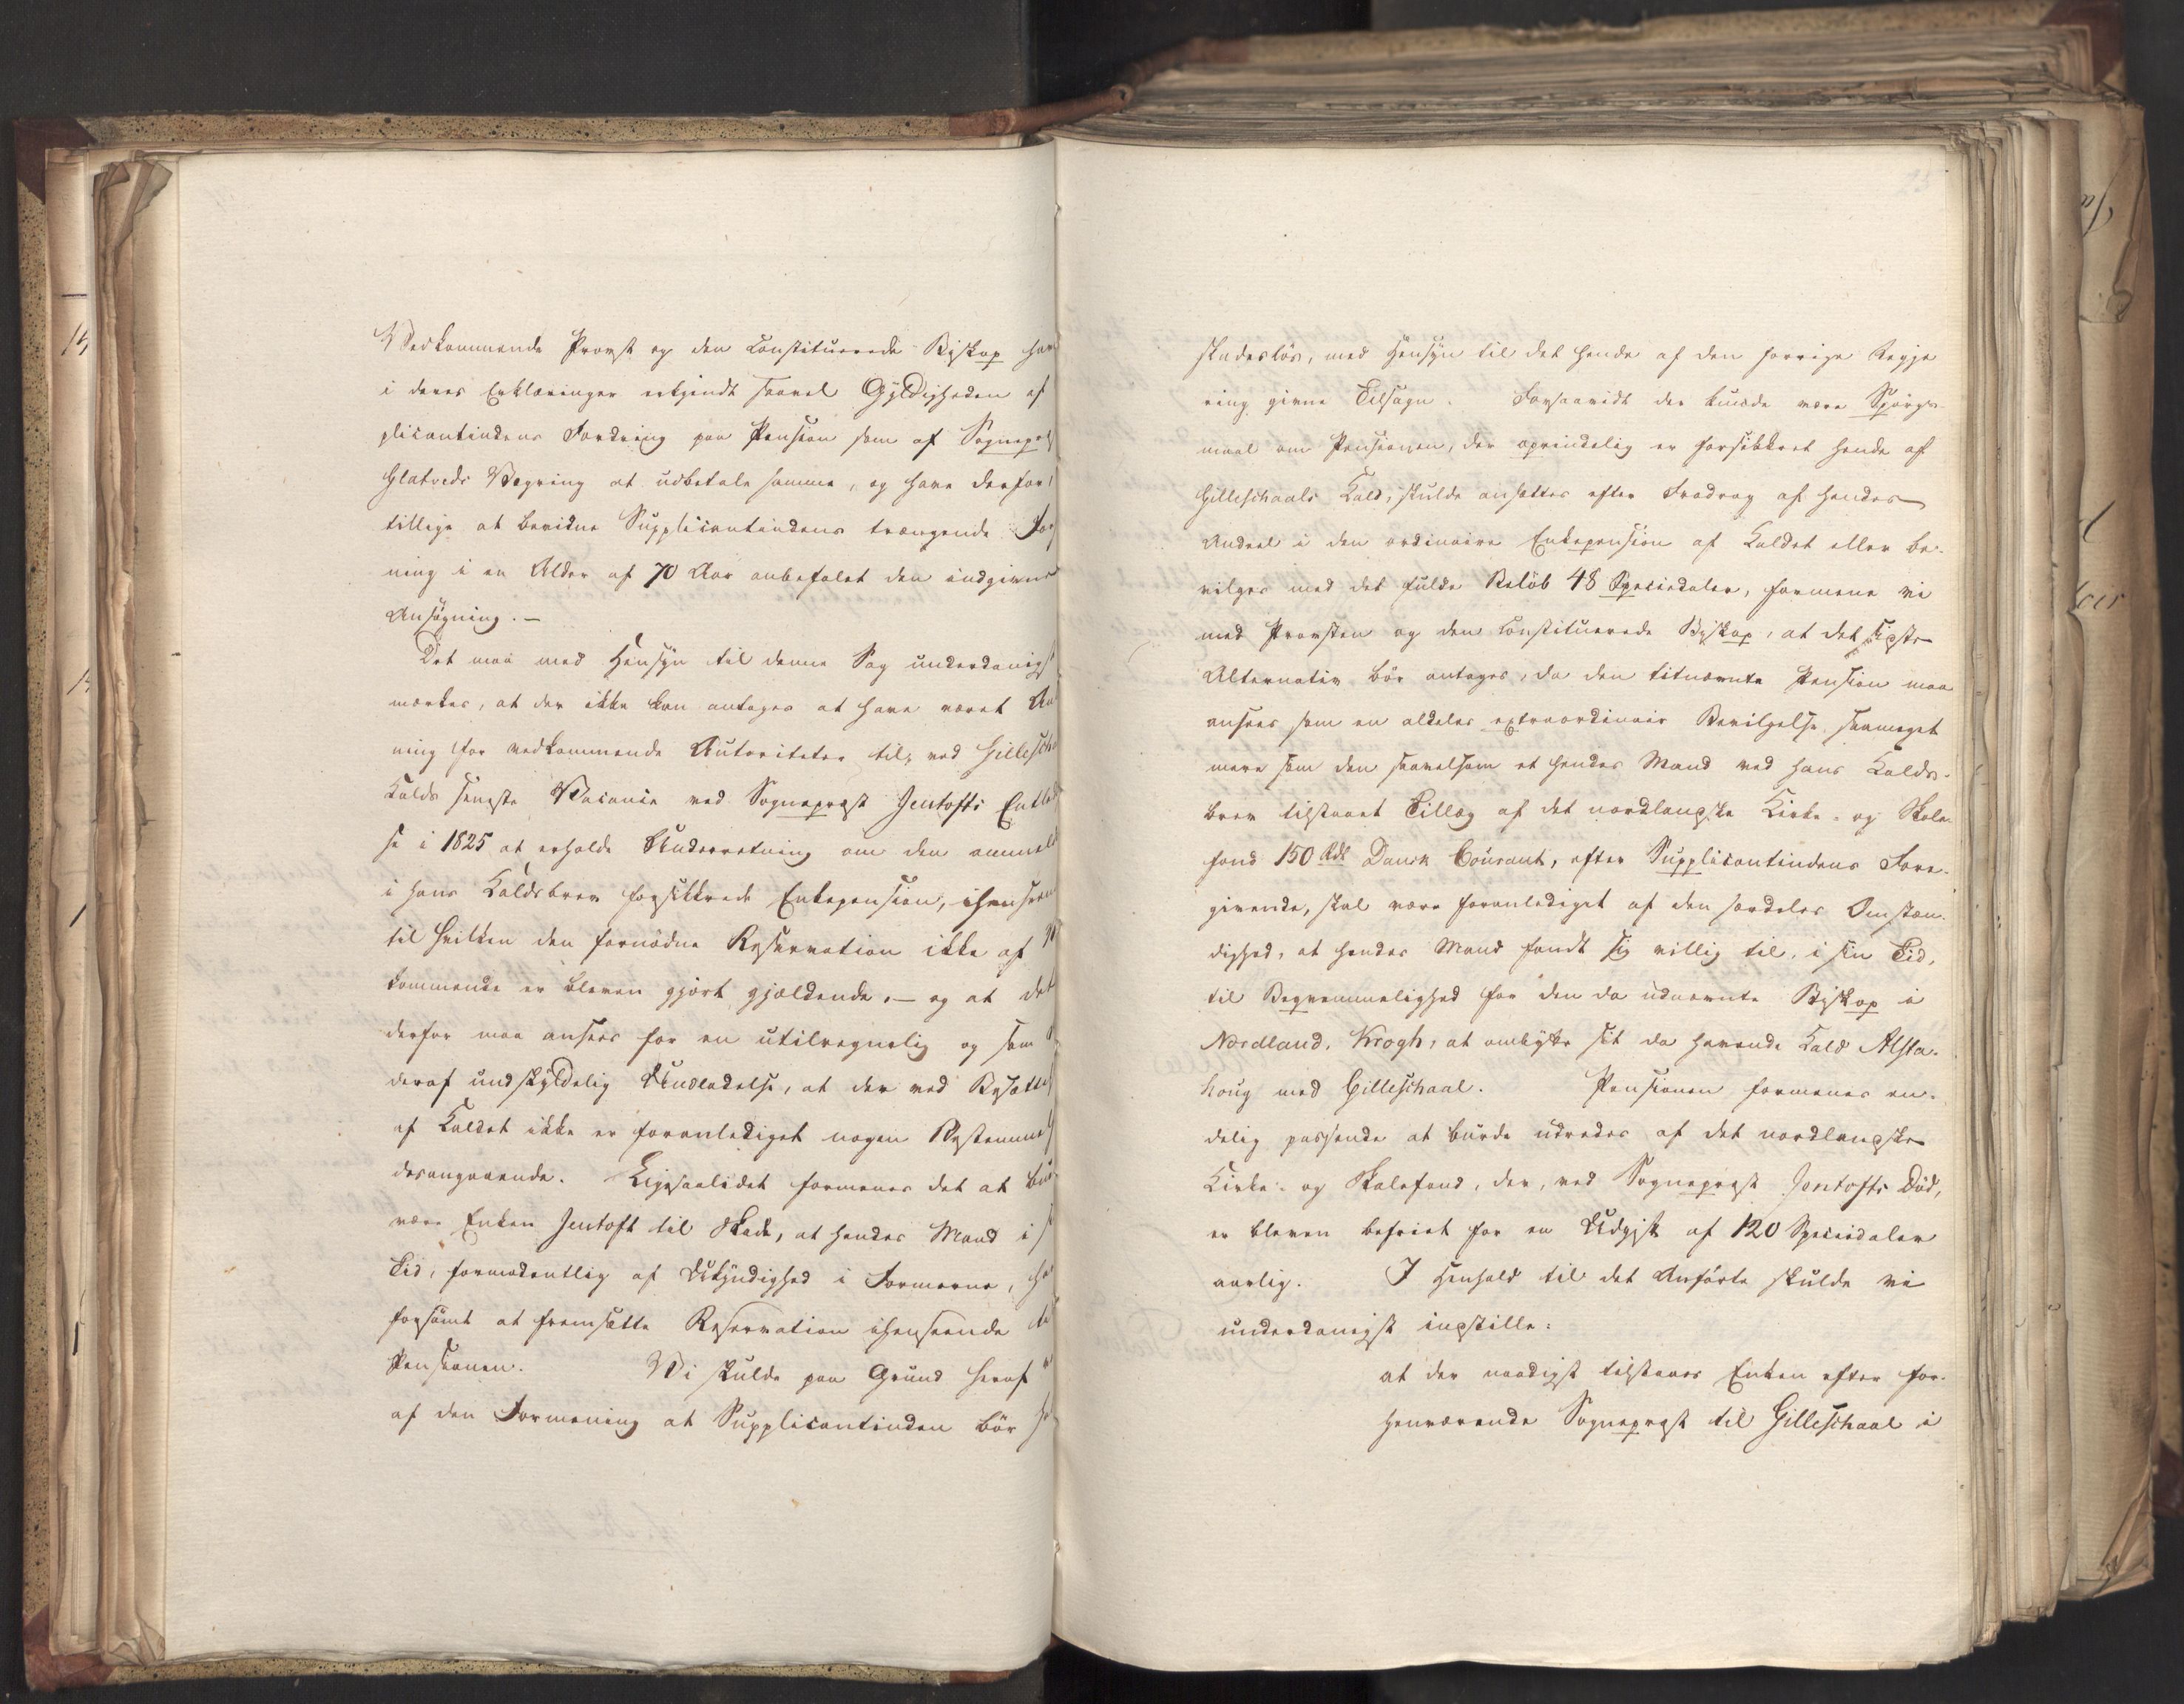 Vedkommende Provst og den constituerede Biskop hav
i deres Erklæringer erkjendt saavel Gyldigheden af
plicantindens Fordring paa Pension som af Sognepræst
Glatveds Vegring at udbetale samme, og have derfor
tillige at bevidne Supplicantindens trængende For
ning i en Alder af 70 Aar anbefalet den indgivne
Ansøgning. —
Det maa med Hensyn til denne Sag underdanigst
mærkes, at der ikke kan antages at have været An
ning for vedkommende Autoriteter til, ved Gillescha
Kalds seneste Vacance ved Sognepræst Jentofts Entled
se i 1825 at erholde Underretning om den ommeld
i hans Kaldsbrev forsikkrede Enkepension, ihenseen
til hvilken den fornödne Reservation ikke af
kommende er bleven gjort gjældende, — og at det
derfor maa ansees for en utilregnelig og som
deraf undskyldelig Undladelse, at der ved Besætte
af Kaldet ikke er foranlediget nogen Bestemmel
desangaaende. Ligesaalidet formenes det at bur
være Enken Jentoft til Skade, at hendes Mand i
Tid, formodentlig af Ukyndighed i Formerne, ha
forsömt at fremsætte Reservation ihenseende til
Pensionen. Vi skulde paa Grund heraf
af den Formening at Supplicantinden bör
skadeslös, med Hensyn til det hende af den forrige Regje-
ring givne Tilsagn. Forsaavidt der kunde være Spörgs-
maal om Pensionen, der oprindelig er forsikkret hende af
Gilleschaals Kald, skulde ansættes efter Fradrag af hendes
Andeel i den ordinaire Enkepension af Kaldet eller be-
vilges med det fulde Belöb 48 Speciedaler, formene vi
med Provsten og den constituerede Biskop, at det sidste
Alternativ bör antages, da den titnævnte Pension maa
ansees som en aldeles extraordinair Bevilgelse saameget
mere som den saavelsom et hendes Mand ved hans Kalds-
brev tilstaaet Tillæg af det nordlandske Kirke- og Skole-
fond 150 Rdl Dansk Courant, efter Supplicantindens Fore-
givende, skal være foranlediget af den særdeles Omstæn-
dighed, at hendes Mand fandt sig villig til, i sin Tid,
til Beqvemmelighed for den da udnævnte Biskop i
Nordland, Krogh, at ombytte sit da havende Kald Alsta-
houg med Gilleschaal. Pensionen formenes en-
delig passende at burde udredes af det nordlandske
Kirke- og Skolefond, der, ved Sognepræst Jentofts Död,
er bleven befriet for en Udgift af 120 Speciedaler
aarlig. I Henhold til det Anförte skulde vi
underdanigst indstille:
at der naadigst tilstaaes Enken efter for-
henværende Sognepræst til Gilleschaal i